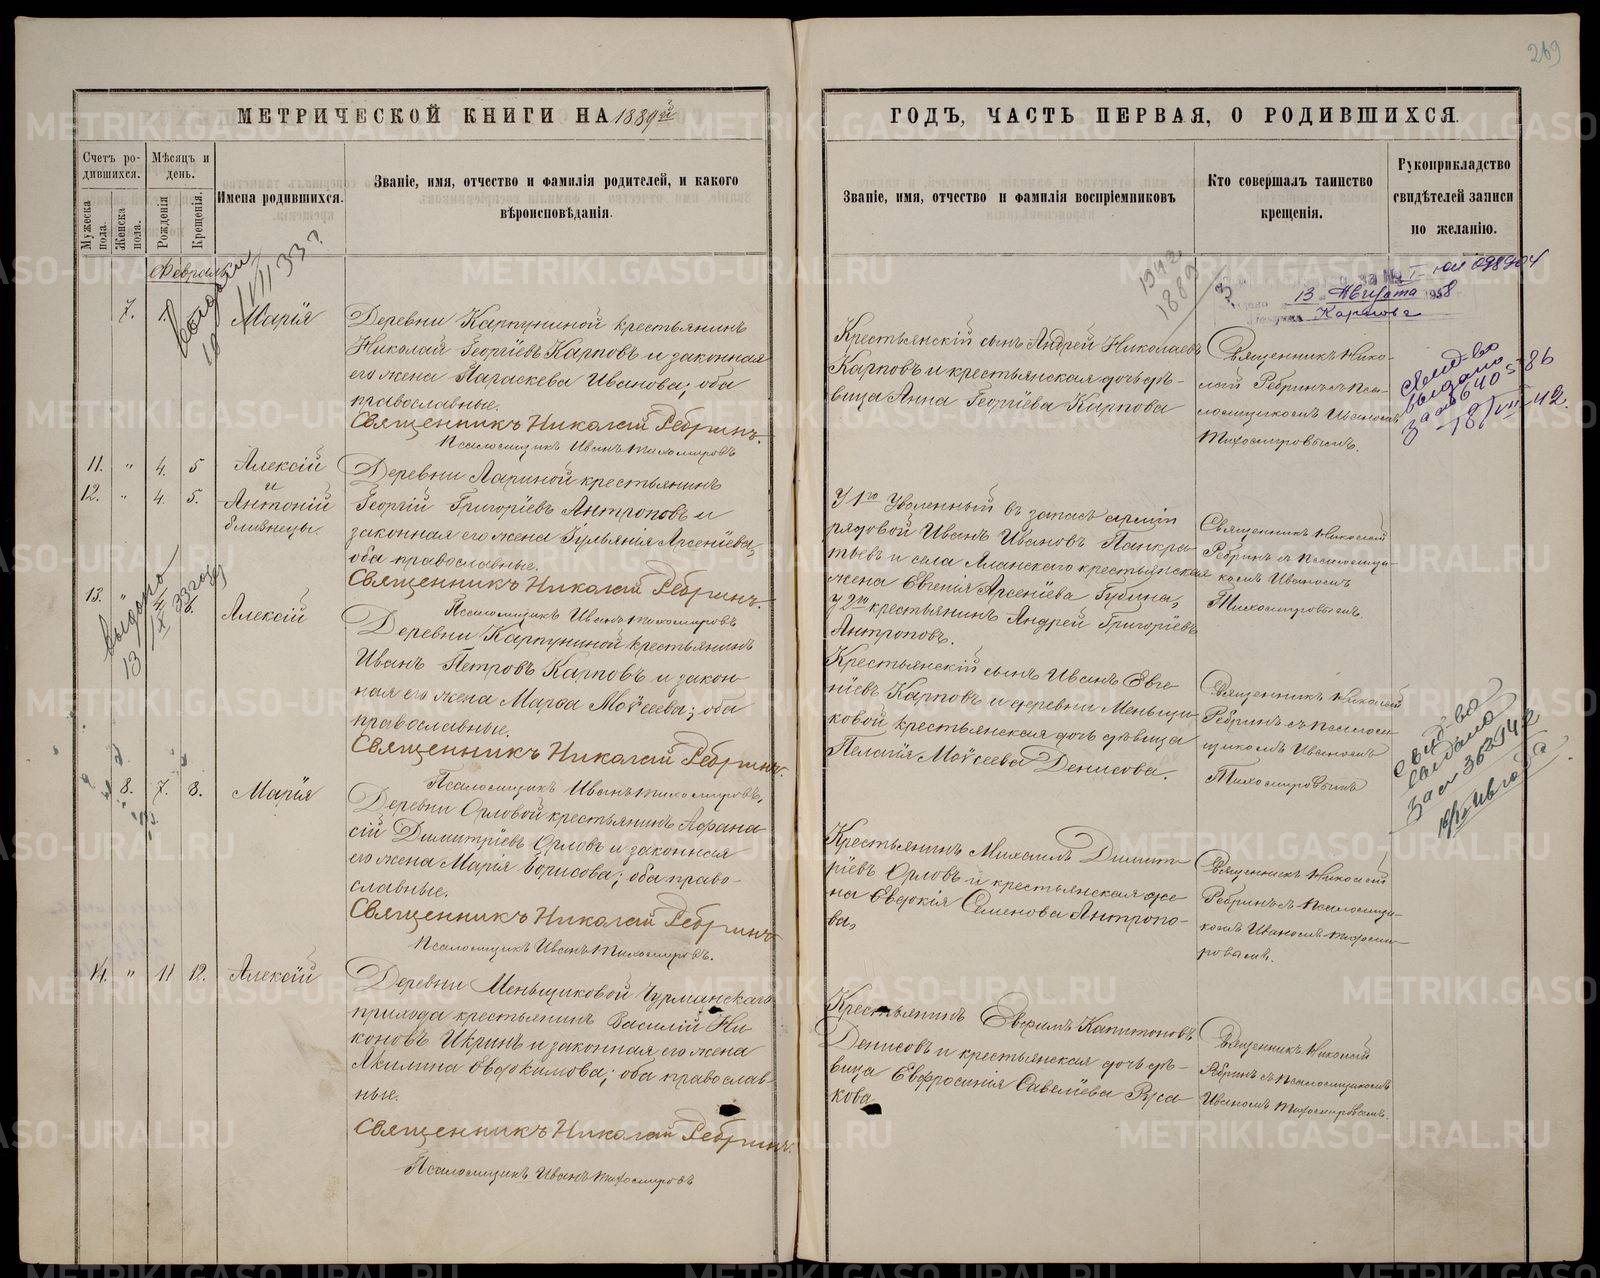 269
МЕТРИЧЕСКОЙ КНИГИ НА 1889й
ГОДЪ, ЧАСТЬ ПЕРВАЯ, О РОДИВШИХСЯ.
Счетъ ро-
дившихся.
Мужеска пола.
Женска пола.
Мѣсяцъ и
день.
Рожденія
Крещенія.
Имена родившихся.
Званіе, имя, отчество и фамилія родителей, и какого
вѣроисповѣданія.
Званіе, имя, отчество и фамилія воспріемниковъ
Кто совершалъ таинство
крещенія.
Рукоприкладство
свидѣтелей записи
по желанію.
Февраль
7.
Марія
Деревни Карпуниной крестьянинъ
Николай Георгіевъ Карповъ и законная
его жена Параскева Иванова; оба
православные.
Священникъ Николай Ребринъ.
Псаломщикъ Иванъ Тихомировъ
Крестьянскій сынъ Андрей Николаевъ
Карповъ и крестьянская дочь дѣ-
вица Анна Георгіева Карпова
Священникъ Нико-
лай Ребринъ съ Пса-
ломщикомъ Иваномъ
Тихомировымъ.
1942
1889
13 Августа 1958
Карпова
свид-во
выдано
11. " 4. 5 Алексій
и
12. " 4. 5. Антоній
близнецы.
Деревни Лариной крестьянинъ
Георгій Григоріевъ Антроповъ и
законная его жена Іульянія Арсеніева,
оба православные.
Священникъ Николай Ребринъ.
Псаломщикъ Иванъ Тихомировъ
У 1го Уволенный въ запасъ арміи
рядовой Иванъ Ивановъ Панкра-
тьевъ и села Аланскаго крестьянская
жена Евгенія Арсеніева Губина,
У 2го крестьянинъ Андрей Григоріевъ
Антроповъ.
Священникъ Николай
Ребринъ съ Псаломщи-
комъ Иваномъ
Тихомировымъ.
выдано
13. " 6. Алексій
Деревни Карпуниной крестьянинъ
Иванъ Петровъ Карповъ и закон-
ная его жена Марѳа Моѵсеева; оба
православные.
Священникъ Николай Ребринъ.
Псаломщикъ Иванъ Тихомировъ,
Крестьянскій сынъ Иванъ Евге-
ніевъ Карповъ и деревни Меньщи-
ковой крестьянская дочь дѣвица
Пелагія Моѵсеева Денисова.
Священникъ Николай
Ребринъ съ Псалом-
щикомъ Иваномъ
Тихомировымъ
свид-во
выдано
8. 7. 8. Марія
Деревни Орловой крестьянинъ Аѳана-
сій Димитріевъ Орловъ и законная
его жена Марія Борисова; оба право-
славные.
Священникъ Николай Ребринъ
Псаломщикъ Иванъ Тихомировъ.
Крестьянинъ Михаилъ Димит-
ріевъ Орловъ и крестьянская же-
на Евдокія Семенова Антропо-
ва,
Священникъ Николай
Ребринъ съ Псаломщи-
комъ Иваномъ Тихоми-
ровымъ.
14. " 11 12. Алексій
Деревни Меньщиковой Чурманскаго
прихода крестьянинъ Василій Ни-
коновъ Икринъ и законная его жена
Акилина Евдокимова; оба православ-
ные.
Священникъ Николай Ребринъ.
Псаломщикъ Иванъ Тихомировъ
Крестьянинъ Евѳимъ Капитоновъ
Денисовъ и крестьянская дочь дѣ-
вица Евфросинія Савеліева Руса-
кова
Священникъ Николай
Ребринъ съ Псаломщикомъ
Иваномъ Тихомировымъ.
METRIKI.GASO-URAL.RU